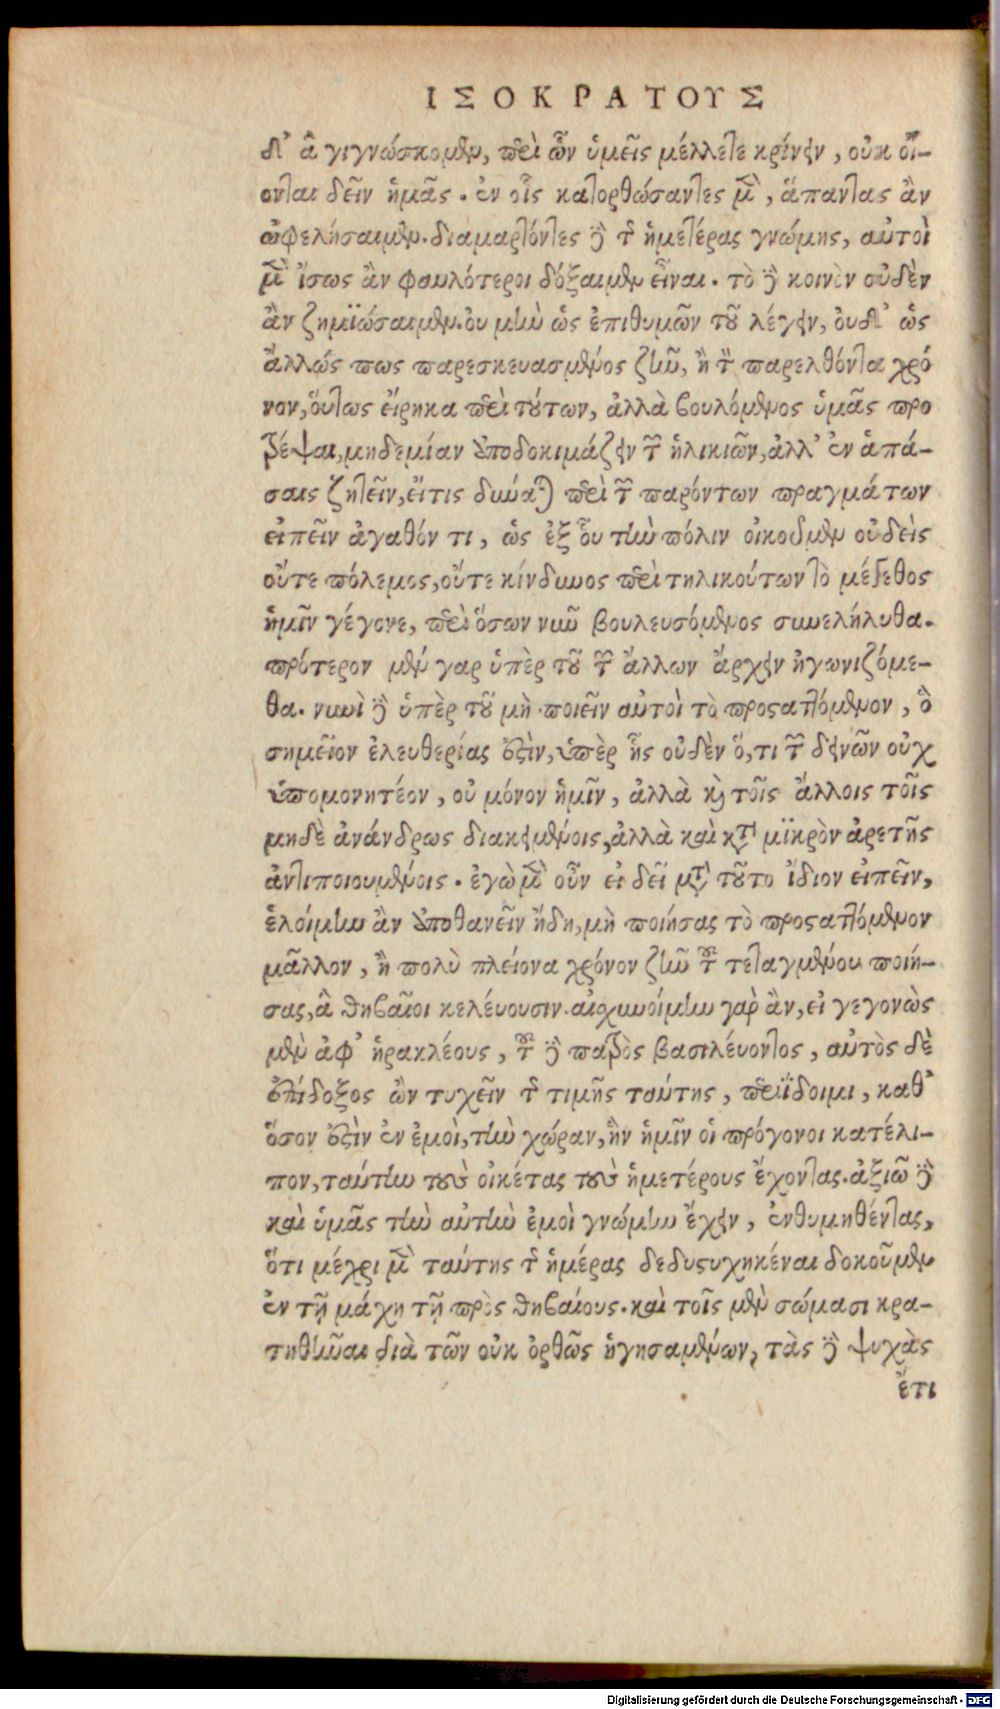 ΙΣΟΚΡΑΤΟΥΣ
δι' ἃ γιγνώσκομεν, περὶ ὧν ὑμεῖς μέλλετε κρίνειν, οὐκ οἴ-
ονται δεῖν ἡμᾶς. ἐν οἷς κατορθώσαντες μὲν, ἅπαντας ἂν
ὠφελήσαιμεν. διαμαρτόντες δὲ τῆς ἡμετέρας γνώμης, αὐτοὶ
μὲν ἴσως ἂν φαυλότεροι δόξαιμεν εἶναι. τὸ δὲ κοινὸν οὐδὲν
ἂν ζημϊώσαιμεν. οὐ μὴν ὡς ἐπιθυμῶν τοῦ λέγειν, οὐδ' ὡς
ἄλλώς πως παρεσκευασμένος ζῆν, ἢ τὸν παρελθόντα χρό
νον, οὕτως εἴρηκα περὶ τούτων, ἀλλὰ βουλόμενος ὑμᾶς προ
τρέψαι, μηδεμίαν ἀποδοκιμάζειν τῶν ἡλικιῶν, ἀλλ' ἐν ἁπά-
σαις ζητεῖν, εἴτις δύναται περὶ τῶν παρόντων πραγμάτων
εἰπεῖν ἀγαθόν τι, ὡς ἐξ οὗ τὴν πόλιν οἰκοῦμεν οὐδεὶς
οὔτε πόλεμος, οὔτε κίνδυνος περὶ τηλικούτων τὸ μέγεθος
ἡμῖν γέγονε, περὶ ὅσων νῦν βουλευσόμενος συνελήλυθα.
πρότερον μὲν γαρ ὑπὲρ τοῦ τῶν ἄλλων ἄρχειν ἠγωνιζόμε-
θα. νυνὶ δὲ ὑπὲρ τοῦ μὴ ποιεῖν αὐτοὶ τὸ προσαττόμενον, ὃ
σημεῖον ἐλευθερίας ἐστὶν, ὑπὲρ ἧς οὐδὲν ὅ,τι τῶν δεινῶν οὐχ
ὑπομονητέον, οὐ μόνον ἡμῖν, ἀλλὰ καὶ τοῖς ἄλλοις τοῖς
μηδὲ ἀνάνδρως διακειμένοις, ἀλλὰ καὶ κατὰ μϊκρὸν ἀρετῆς
ἀντιποιουμένοις. ἐγὼ μὲν οὖν εἰ δεῖ μετὰ τοῦτο ἴδιον εἰπεῖν,
ἑλοίμην ἂν ἀποθανεῖν ἤδη, μὴ ποιήσας τὸ προσαττόμενον
μᾶλλον, ἢ πολὺ πλείονα χρόνον ζῆν τοῦ τεταγμένου ποιή-
σας, ἃ θηβαῖοι κελέυουσιν. αἰσχυνοίμην γὰρ ἂν, εἰ γεγονὼς
μὲν ἀφ' ἡρακλέους, τοῦ δὲ πατρὸς βασιλέυοντος, αὐτὸς δὲ
ἐπίδοξος ὢν τυχεῖν τῆς τιμῆς ταύτης, περιΐδοιμι, καθ'
ὅσον ἐστὶν ἐν ἐμοὶ, τὴν χώραν, ἣν ἡμῖν οἱ πρόγονοι κατέλι-
πον, ταύτην τοὺς οἰκέτας τοὺς ἡμετέρους ἔχοντας. ἀξιῶ δὲ
καὶ ὑμᾶς τὴν αὐτὴν ἐμοὶ γνώμην ἔχειν, ἐνθυμηθέντας,
ὅτι μέχρι μὲν ταύτης τῆς ἡμέρας δεδυςυχηκέναι δοκοῦμεν
ἐν τῇ μάχῃ τῇ πρὸς θηβαίους. καὶ τοῖς μὲν σώμασι κρα-
τηθῆναι διὰ τῶν οὐκ ὀρθῶς ἡγησαμένων, τὰς δὲ ψυχὰς
ἔτι
Digitalisierung gefördert durch die Deutsche Forschungsgemeinschaft - DFG